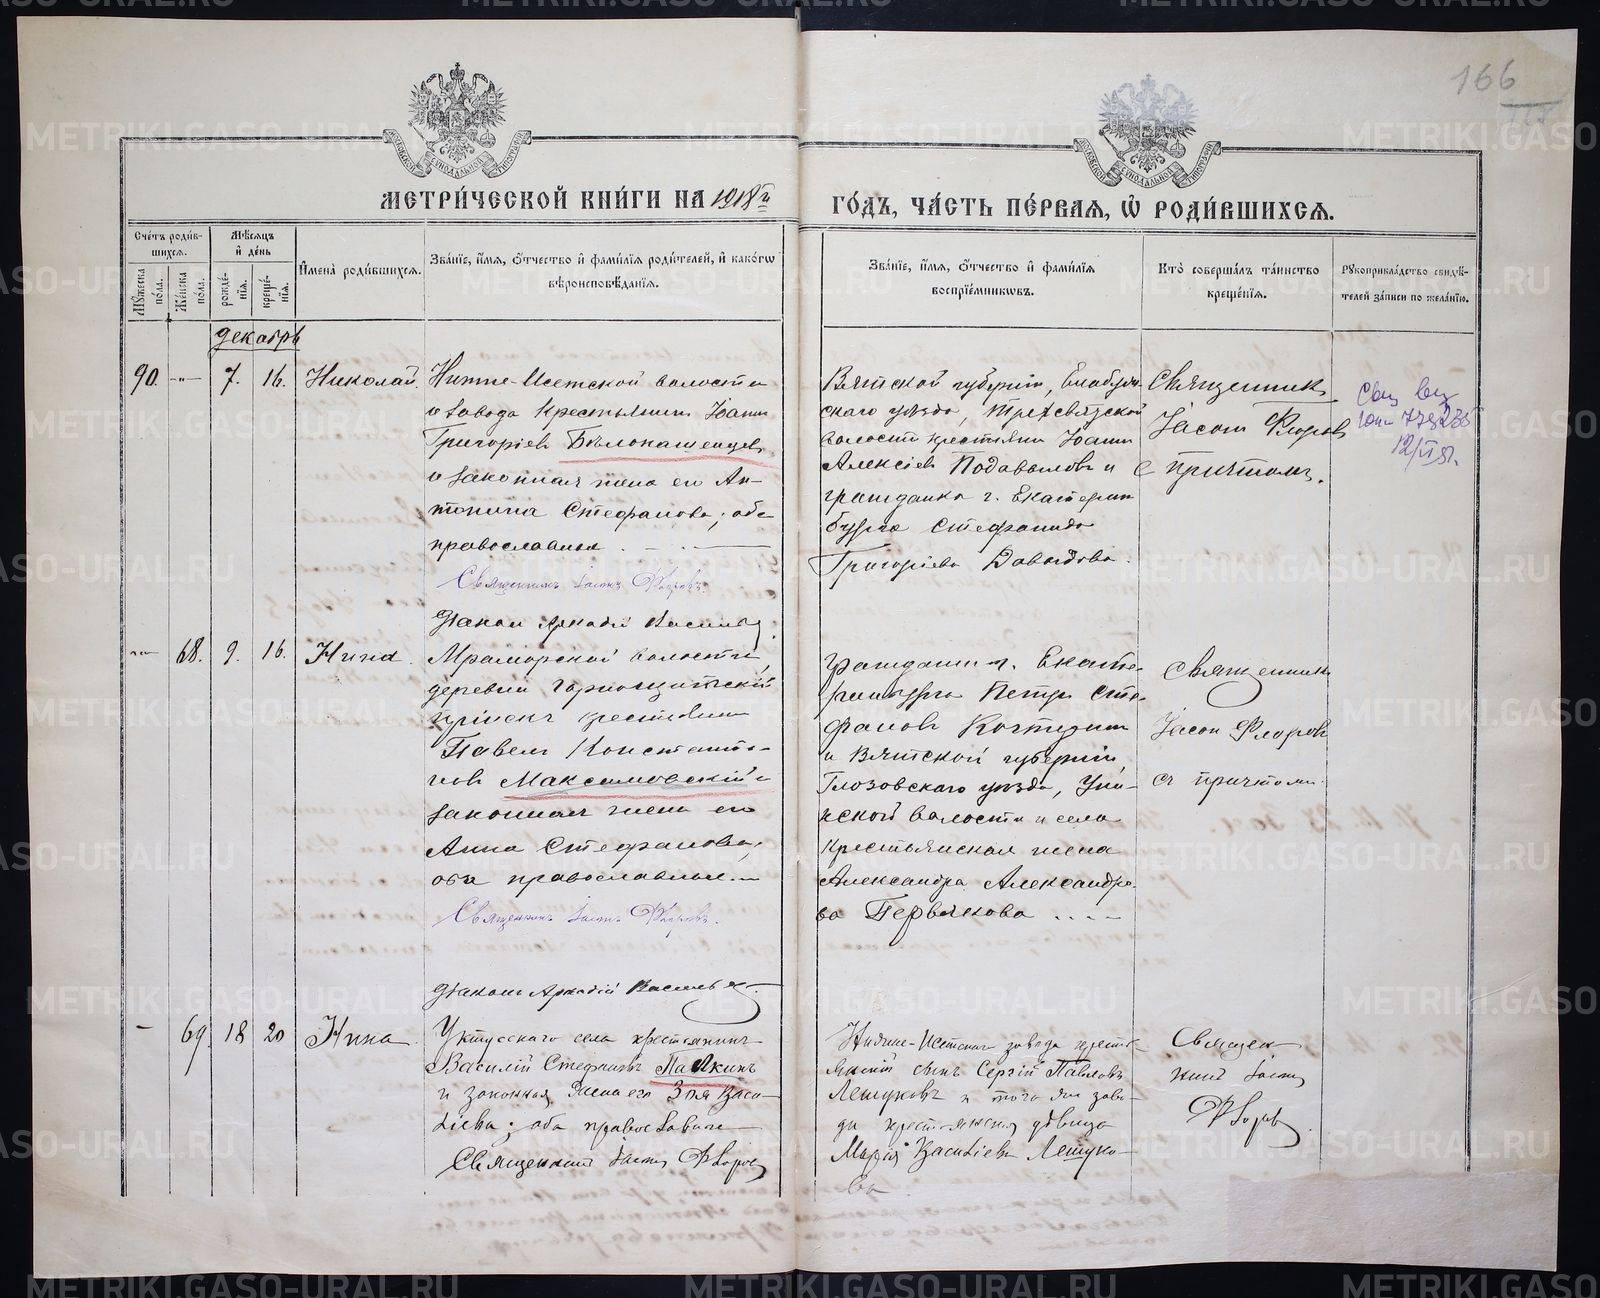 166
МЕТРИ́ЧЕСКОЙ КНИ́ГИ НА 1918й
ГО́ДЪ, ЧА́СТЬ ПЕ́РВАЯ, Ѿ РОДИ́ВШИХСЯ.
Сче́тъ роди́в-
шихся.
Му́жеска по́ла.
Же́нска по́ла.
Мѣ́сяцъ
и҆ де́нь
рожде́-
нїя.
креще́-
нїя.
И҆мена̀ роди́вшихся.
Зва́нїе, и҆́мя, ѻ҆́тчество и҆ фами́лїя роди́телей, и҆ како́гѡ
вѣроисповѣ́данїя.
Зва́нїе, и҆́мя, ѻ҆́тчество и҆ фами́лїя
воспрїе́мникѡвъ.
Кто̀ соверша́лъ та́инство
креще́нїя.
Рꙋкоприкла́дство свидѣ́-
телей за́писи по жела́нїю.
декабрь
90. -„- 7. 16. Николай.
Нижне-Исетской волости
и завода крестьянин Іоанн
Григоріев Бѣлокашенцев
и законная жена его Ан-
тонина Стефанова; оба
православные.
Священникъ Іасонъ Флоровъ.
Діакон Аркадій Васильев
Вятской губерніи, Елабуж-
скаго уѣзда, Трехсвятской
волости крестьянин Іоанн
Алексіев Подавылов и
гражданка г. Екатерин
бурга Стефанида
Григоріева Давыдова.
Священник
Іасон Флоров
с причтом.
12/II 51.
-„- 68. 9. 16. Нина.
Мраморской волости,
деревни Горнощитскій
пріиск крестьянин
Павел Константи-
нов Максимовскій и
законная жена его
Анна Стефанова,
оба православные.
Священникъ Іасонъ Флоровъ.
Діаконъ Аркадій Васильев
Гражданин г. Екате-
ринбурга Петр Сте-
фанов Костерин
и Вятской губерніи,
Глозовскаго уѣзда, Уни-
нской волости и села
крестьянская жена
Александра Александро-
ва Первякова
Священник
Іасон Флоров
с причтом.
- 69 18 20 Нина
Уктусскаго села крестьянинъ
Василій Стефановъ Палкинъ
и законная жена его Зоя Васи-
ліева; оба православные
Священникъ Іасонъ Флоровъ
Нижне-Исетскаго завода кресть-
янскій сынъ Сергій Павловъ
Летуковъ и того же заво-
да крестьянская дѣвица
Марія Василіева Летуко-
ва
Священ-
никъ Іасонъ
Флоровъ
METRIKI.GASO-URAL.RU